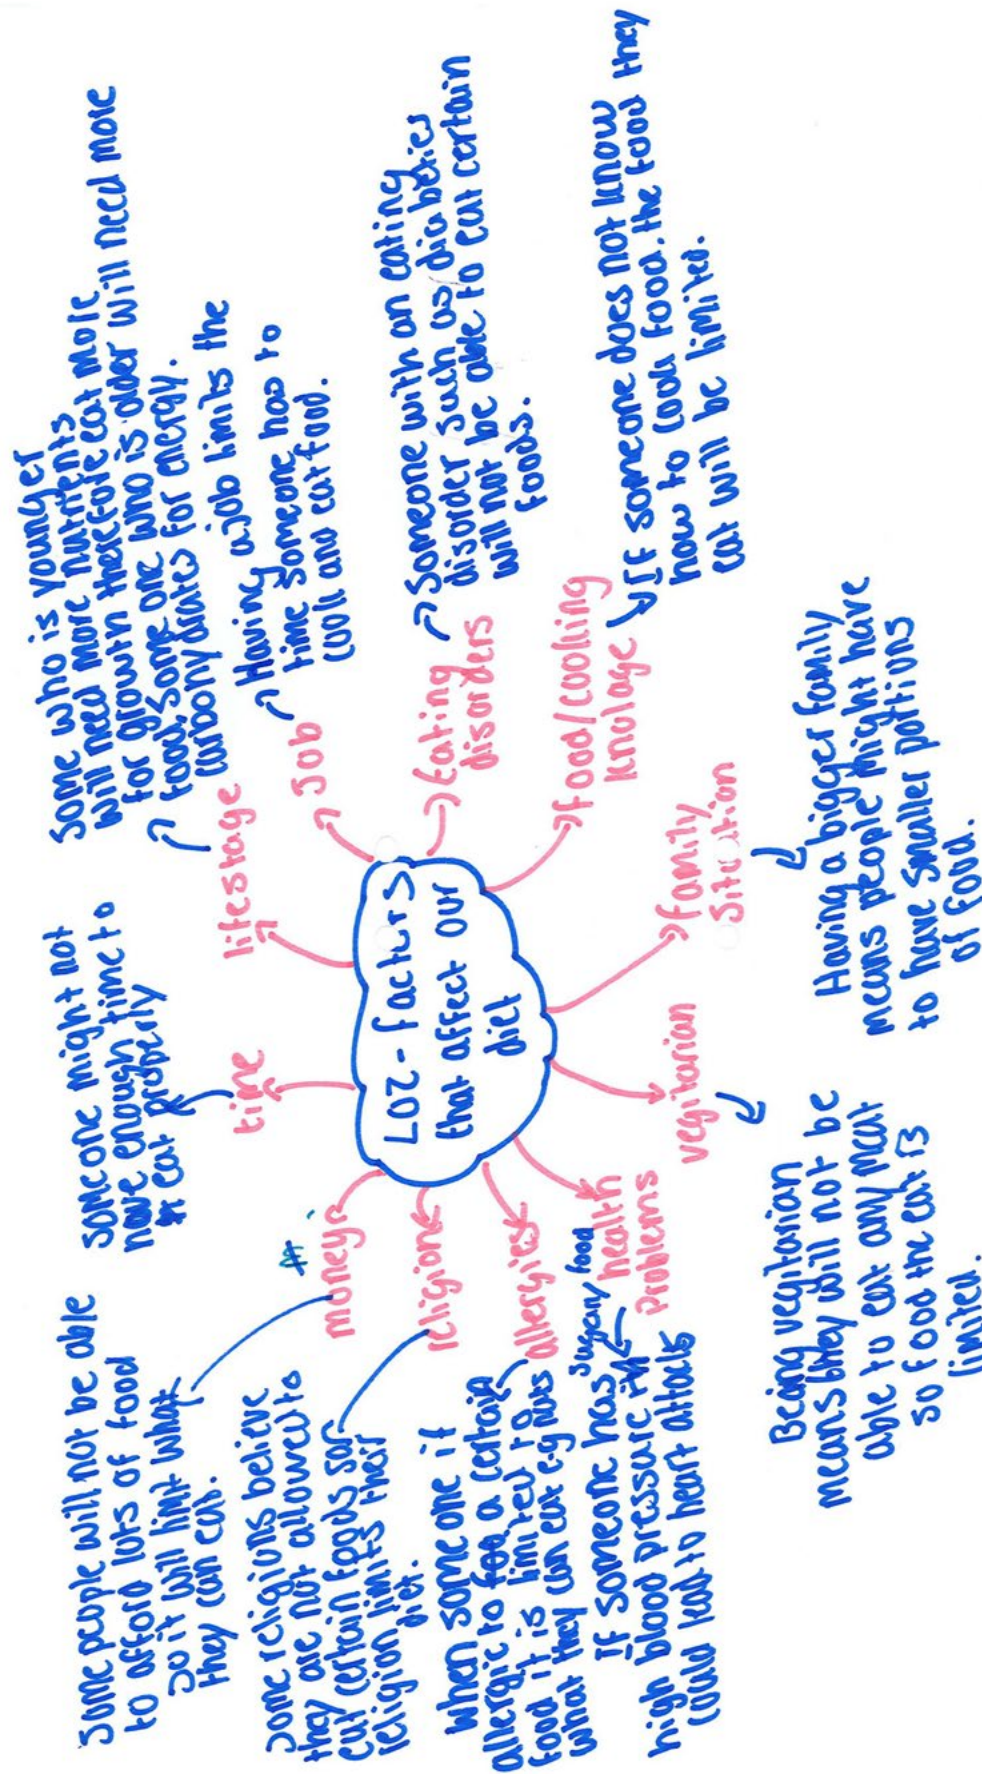 LO2 - factors
that affect our
diet
money
Some people will not be able
to afford lots of food
so it will limit what
they can eat.
time
someone might not
have enough time to
eat properly
lifestage
Some who is younger
will need more nutrients
for growth therefore eat more
food. Some one who is older will need more
carbohydrates for energy.
Job
Having a job limits the
time someone has to
cook and eat food.
Eating
disorders
Someone with an eating
disorder such as diabeties
will not be able to eat certain
foods.
food/cooking
knolage
If someone does not know
how to cook food. the food they
eat will be limited.
family
Situation
Having a bigger family
means people might have
to have smaller portions
of food.
vegitarian
Being vegitarian
means they will not be
able to eat any meat
so food the eat is
limited.
health
problems
sugary food
If someone has
high blood pressure
could lead to heart attacks
allergies
When some one if
allergic to a certain
food it is limited to
what they can eat e.g nuts
religion
Some religions believe
they are not allowed to
eat certain foods so
religion limits their
diet.